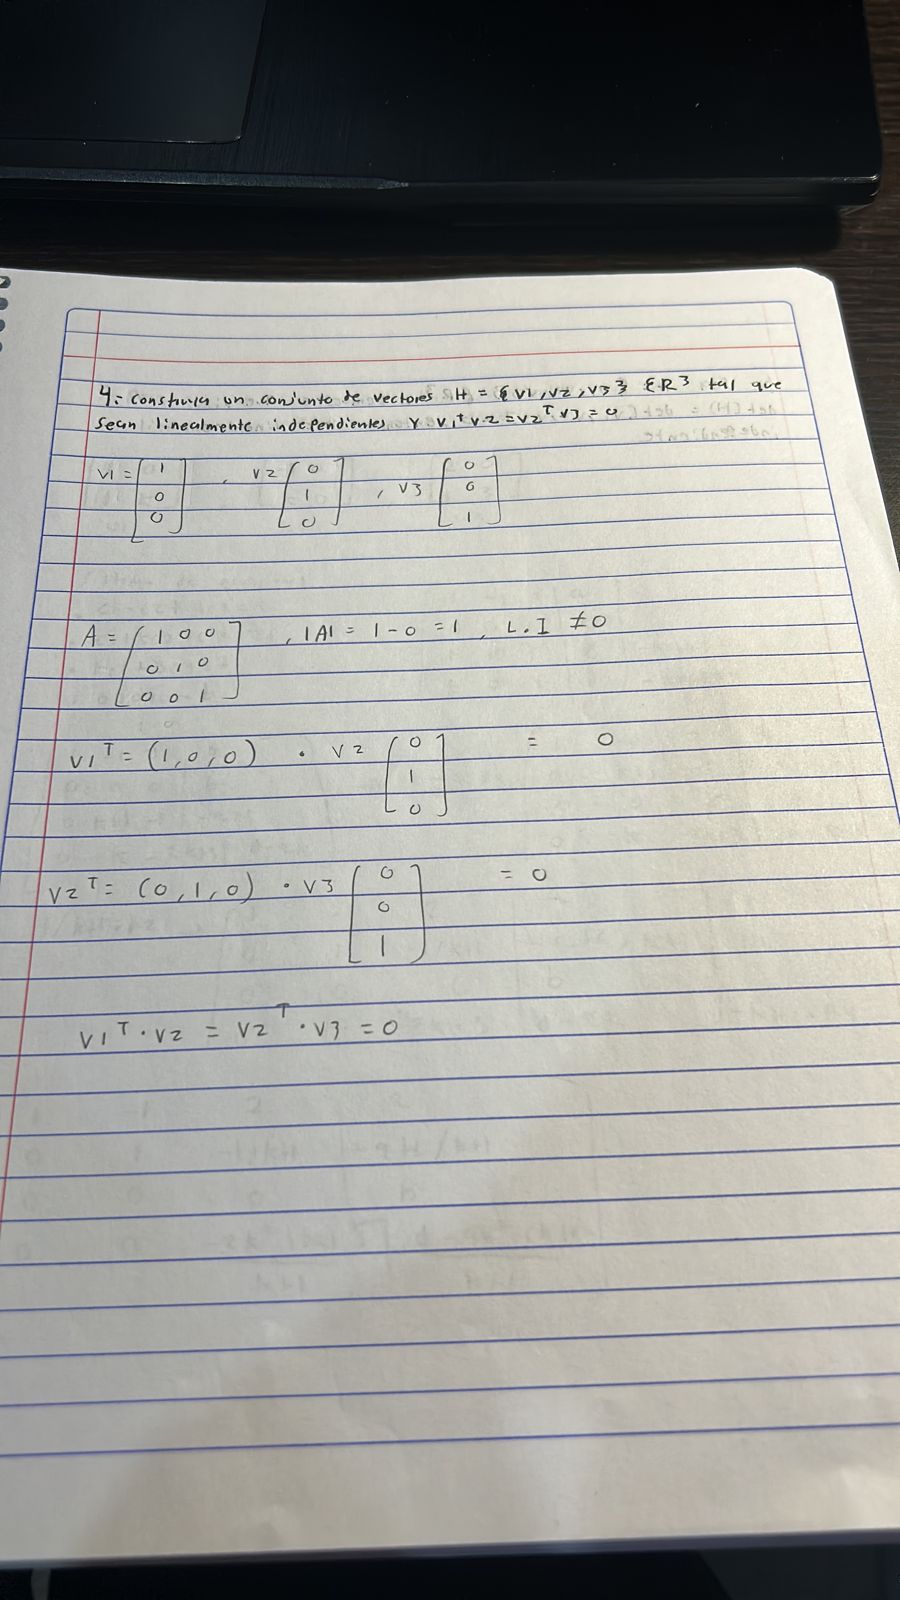 4.- Construya un conjunto de vectores H = { v1, v2, v3 } ε R³ tal que
sean linealmente independientes y v1ᵀ v2 = v2ᵀ v3 = 0
v1 = [1 0 0] , v2 [0 1 0] , v3 [0 0 1]
A = [1 0 0 , |A| = 1 - 0 = 1 , L.I ≠ 0
0 1 0
0 0 1]
v1ᵀ = (1, 0, 0) · v2 [0 1 0] = 0
v2ᵀ = (0, 1, 0) · v3 [0 0 1] = 0
v1ᵀ · v2 = v2ᵀ · v3 = 0